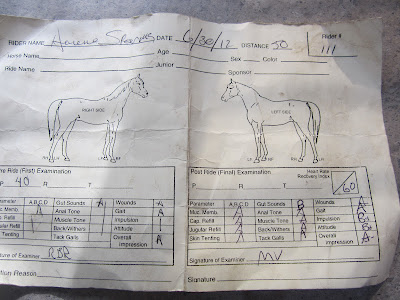 RIDER NAME DATE 6/30/12 DISTANCE 50 Rider #
111
Horse Name Age Sex Color
Ride Name Junior Sponsor
RIGHT SIDE LEFT SIDE
Ride (First) Examination Post Ride (Final) Examination Heart Rate Recovery Index
P 40 R. T. P. R. T. 60
Parameter A B C D Gut Sounds A Wounds A
Muc. Memb. A Anal Tone Gait A
Cap. Refill Muscle Tone Impulsion
Jugular Refill Back/Withers Attitude
Tenting Tack Galls Overall Impression A
Parameter A B C D Gut Sounds B Wounds A
Muc. Memb. A Anal Tone A Gait A
Cap. Refill A Muscle Tone A Impulsion B
Jugular Refill A Back/Withers A Attitude B
Skin Tenting A Tack Galls A Overall impression A
Signature of Examiner RBR Signature of Examiner MV
Reason Signature